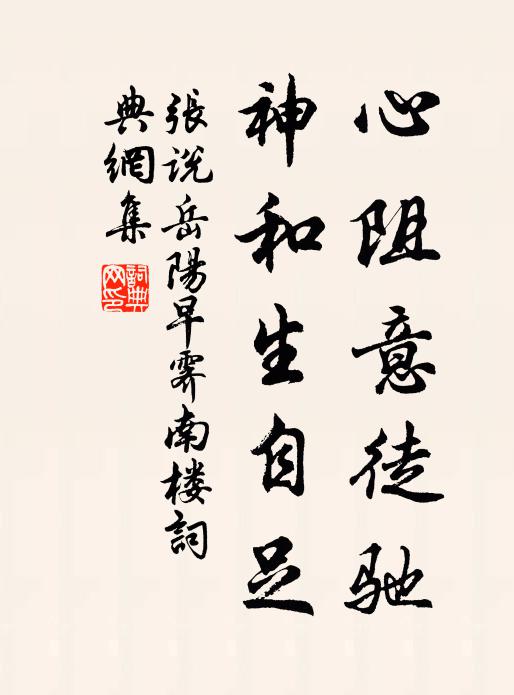 心阻意徒驰
神和生自足
張说岳陽早霽南楼詞
典網集
詞典网印